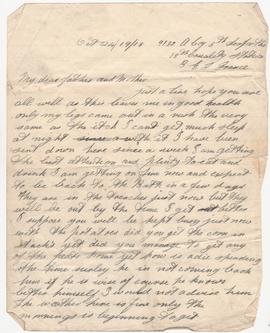 Oct 22nd/1918 9130 A Coy 8th
18th Casualty Station
B E F France
My dear father and Mother
Just a line hope you are
all well as this leaves me in good health
only my legs came out in a rash the very
same as the itch I cant get much sleep
at night with it I have been
sent down here since a week I am getting
the best attention and plenty to eat and
drink I am getting on fine now and expect
to be back to the Batt in a few days
they are in the trenches just now but they
will be out by the time I get
I suppose you will be kept busy just now
with the potatoes did you get the corn in
stacks yet did you manage to get any
of the peats home yet how is adie spending
the time surley he in not coming back
him if he is wise of course he knows
better himself I should not advise him
The weather here is fine only the
mornings is beginning to get